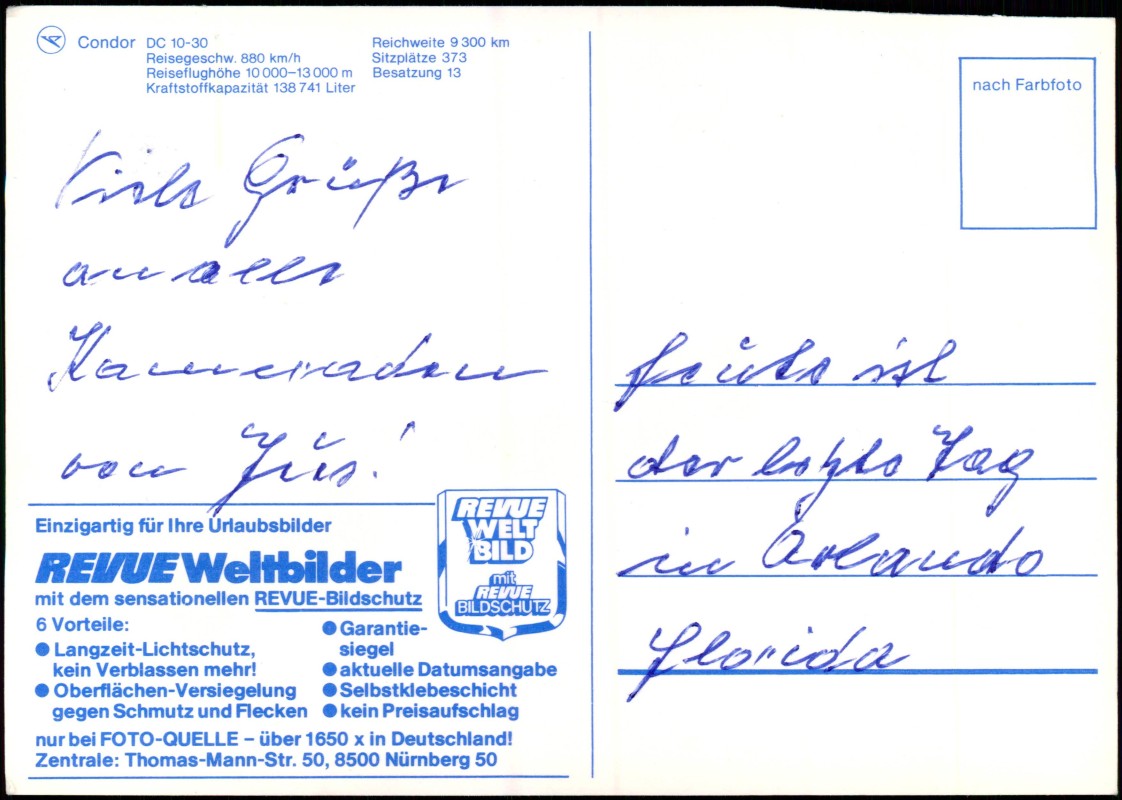 Condor DC 10-30
Reisegeschw. 880 km/h
Reiseflughöhe 10 000–13 000 m
Kraftstoffkapazität 138 741 Liter
Reichweite 9 300 km
Sitzplätze 373
Besatzung 13
Viele Grüße
an alle
Kameraden
von
Einzigartig für Ihre Urlaubsbilder
REVUE Weltbilder
mit dem sensationellen REVUE-Bildschutz
6 Vorteile:
● Langzeit-Lichtschutz,
kein Verblassen mehr!
● Oberflächen-Versiegelung
gegen Schmutz und Flecken
● Garantie-
siegel
● aktuelle Datumsangabe
● Selbstklebeschicht
● kein Preisaufschlag
REVUE
WELT
BILD
mit
REVUE
BILDSCHUTZ
nur bei FOTO-QUELLE – über 1650 x in Deutschland!
Zentrale: Thomas-Mann-Str. 50, 8500 Nürnberg 50
nach Farbfoto
heute ist
der letzte Tag
in Orlando
Florida